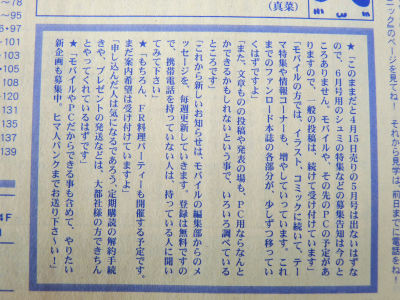 ニックのページを見てね! それから見学は、前日までに電話をね!
(真菜)
★「このままだと4月15日売りの5月号は出ないはずな
ので、5月号用のシュミの特集などの募集告知は今のと
ころありません。モバイルや、その先のPCの予定があ
りますので、一般の投稿は、続けて受け付けています」
「モバイルの方では、イラスト、コミックに続いて、テー
マ特集や情報コーナーも、増やしていっています。これ
までのファンロード本誌の各部分が、少しずつ移ってい
くはずです」
「また、文章ものの投稿や発表の場も、PC用ならなんと
かできるかもしれないという事で、いろいろ調べている
ところです」
「これから新しいお知らせは、モバイルの編集部からのメ
ッセージを、毎週更新していきます。登録は無料ですの
で、携帯電話を持っていない人は、持っている人に聞い
てみて下さい」
★「もちろん、FR料理パーティーも開催する予定です。
まだ案内希望は受け付けていますよ」
「申し込んだ人は気になるであろう、定期購読の解約手続
きや、プレゼントの発送などは、大都社様の方できちん
とやってくれているはずです」
★「モバイルやPCだからできる事も含めて、やりたい
新企画も募集中。ヒマ人バンクまでお送り下さ〜い!」
~78
~95
5・97
~101
~103
・107
111
115
131
133
135
137
139
4F